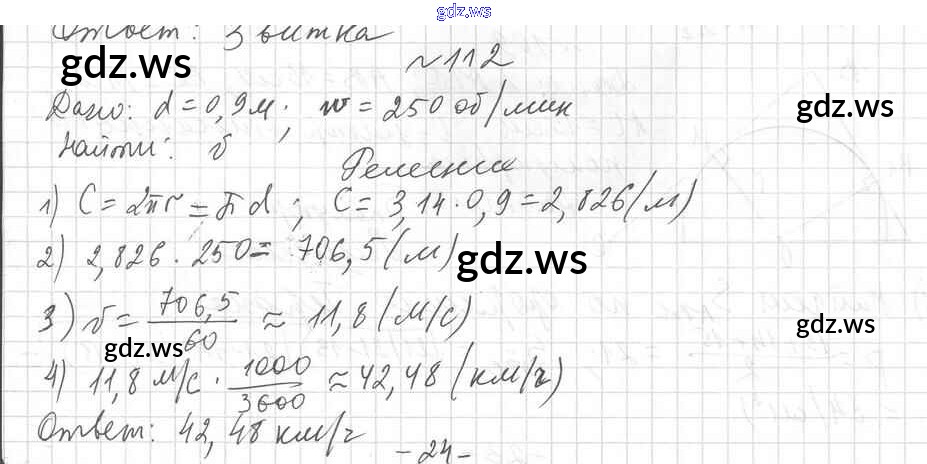 gdz.ws
Ответ: 3 витка
№112
gdz.ws
Дано: d = 0,9м. ; w = 250 об/мин
gdz.ws
Найти: v
Решение
1) C = 2πr = πd ; C = 3,14 · 0,9 = 2,826 (м)
2) 2,826 · 250 = 706,5 (м)
gdz.ws
3) v = 706,5/60 ≈ 11,8 (м/с)
gdz.ws
gdz.ws
4) 11,8 м/с · 1000/3600 ≈ 42,48 (км/ч)
Ответ: 42,48 км/ч
-24-